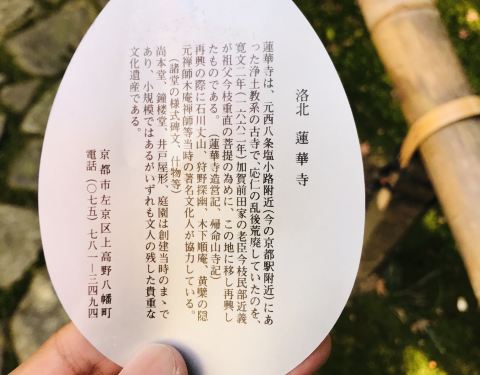 洛北 蓮華寺
蓮華寺は、元西八条塩小路附近(今の京都駅附近)にあ
った浄土教系の古寺で、応仁の乱後荒廃していたのを、
寛文二年(一六六二年)加賀前田家の老臣今枝民部近義
が祖父今枝重直の菩提の為めに、この地に移し再興し
たものである。(蓮華寺造営記、帰命山寺記)
再興の際に石川丈山、狩野探幽、木下順庵、黄檗の隠
元禅師木庵禅師等当時の著名文化人が協力している。
(諸堂の様式碑文、什物等)
尚本堂、鐘楼堂、井戸屋形、庭園は創建当時のまゝで
あり、小規模ではあるがいずれも文人の残した貴重な
文化遺産である。
京都市左京区上高野八幡町
電話(〇七五)七八一―三四九四